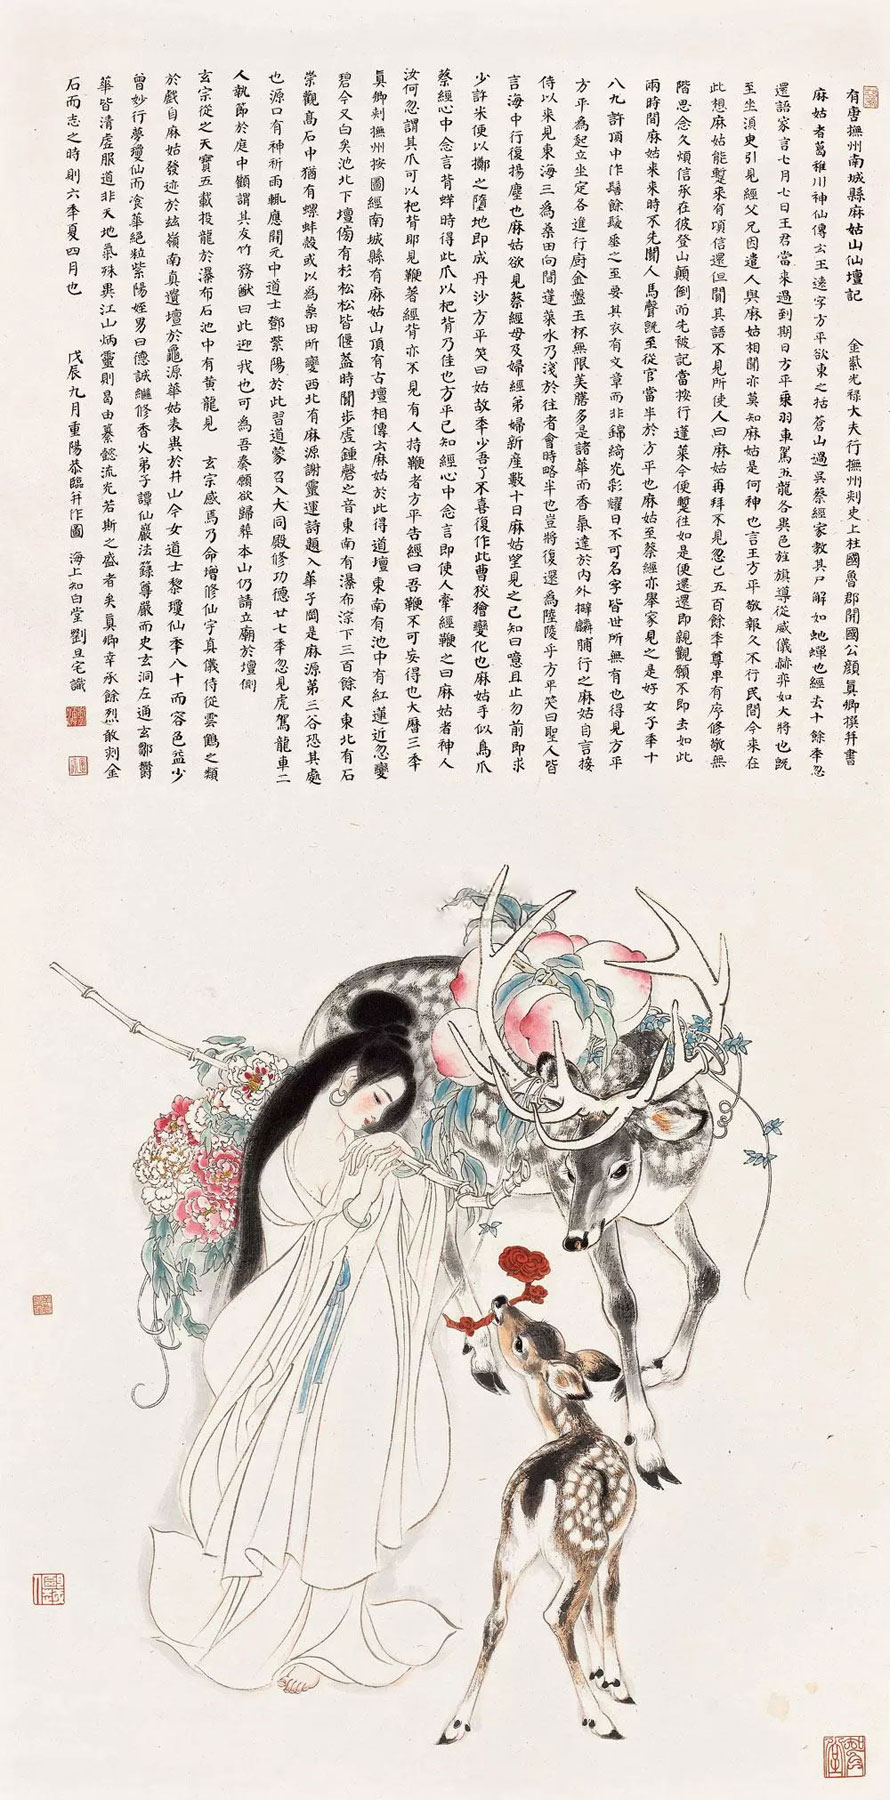 有唐撫州南城縣麻姑山仙壇記　金紫光祿大夫行撫州刺史上柱國魯郡開國公顏真卿撰并書
麻姑者葛稚川神仙傳云王遠字方平欲東之括蒼山過吳蔡經家教其尸解如虵蟬也經去十餘年忽
還語家言七月七日王君當來過到期日方平乘羽車駕五龍各異色旌旗導從威儀赫弈如大將也既
至坐須臾引見經父兄因遣人與麻姑相聞亦莫知麻姑是何神也言王方平敬報久不行民間今來在
此想麻姑能蹔來有頃信還但聞其語不見所使人曰麻姑再拜不見忽已五百餘年尊卑有序修敬無
階思念久煩信承在彼登山顛倒而先被記當按行蓬萊今便蹔往如是便還還即親觀願不即去如此
兩時間麻姑來來時不先聞人馬聲既至從官當半於方平也麻姑至蔡經亦舉家見之是好女子年十
八九許頂中作髻餘髮垂之至要其衣有文章而非錦綺光彩耀日不可名字皆世所無有也得見方平
方平為起立坐定各進行廚金盤玉杯無限美膳多是諸華而香氣達於內外擗麟脯行之麻姑自言接
侍以來見東海三為桑田向間蓬萊水乃淺於往者會時略半也豈將復還為陸陵乎方平笑曰聖人皆
言海中行復揚塵也麻姑欲見蔡經母及婦經弟婦新產數十日麻姑望見之已知曰噫且止勿前即求
少許米便以擲之墮地即成丹沙方平笑曰姑故年少吾了不喜復作此曹狡獪變化也麻姑手似鳥爪
蔡經心中念言背蛘時得此爪以杷背乃佳也方平已知經心中念言即使人牽經鞭之曰麻姑者神人
汝何忽謂其爪可以杷背耶見鞭著經背亦不見有人持鞭者方平告經曰吾鞭不可妄得也大曆三年
真卿刺撫州按圖經南城縣有麻姑山頂有古壇相傳云麻姑於此得道壇東南有池中有紅蓮近忽變
碧今又白矣池北下壇傍有杉松松皆偃蓋時聞步虛鍾磬之音東南有瀑布淙下三百餘尺東北有石
崇觀高石中猶有螺蚌殼或以為桑田所變西北有麻源謝靈運詩題入華子岡是麻源第三谷恐其處
也源口有神祈雨輒應開元中道士鄧紫陽於此習道蒙召入大同殿修功德廿七年忽見虎駕龍車二
人執節於庭中顧謂其友竹務猷曰此迎我也可為吾奏願欲歸葬本山仍請立廟於壇側
玄宗從之天寶五載投龍於瀑布石池中有黃龍見　玄宗感焉乃命增修仙宇真儀侍從雲鶴之類
於戲自麻姑發迹於茲嶺南真遺壇於龜源華姑表異於井山今女道士黎瓊仙年八十而容色益少
曾妙行夢瓊仙而飡華絕粒紫陽姪男曰德誠繼修香火弟子譚仙巖法籙尊嚴而史玄洞左通玄鄒鬱
華皆清虛服道非天地氣殊異江山炳靈則曷由纂懿流光若斯之盛者矣真卿幸承餘烈敢刻金
石而志之時則六年夏四月也　戊辰九月重陽恭臨并作圖　海上知白堂劉旦宅識